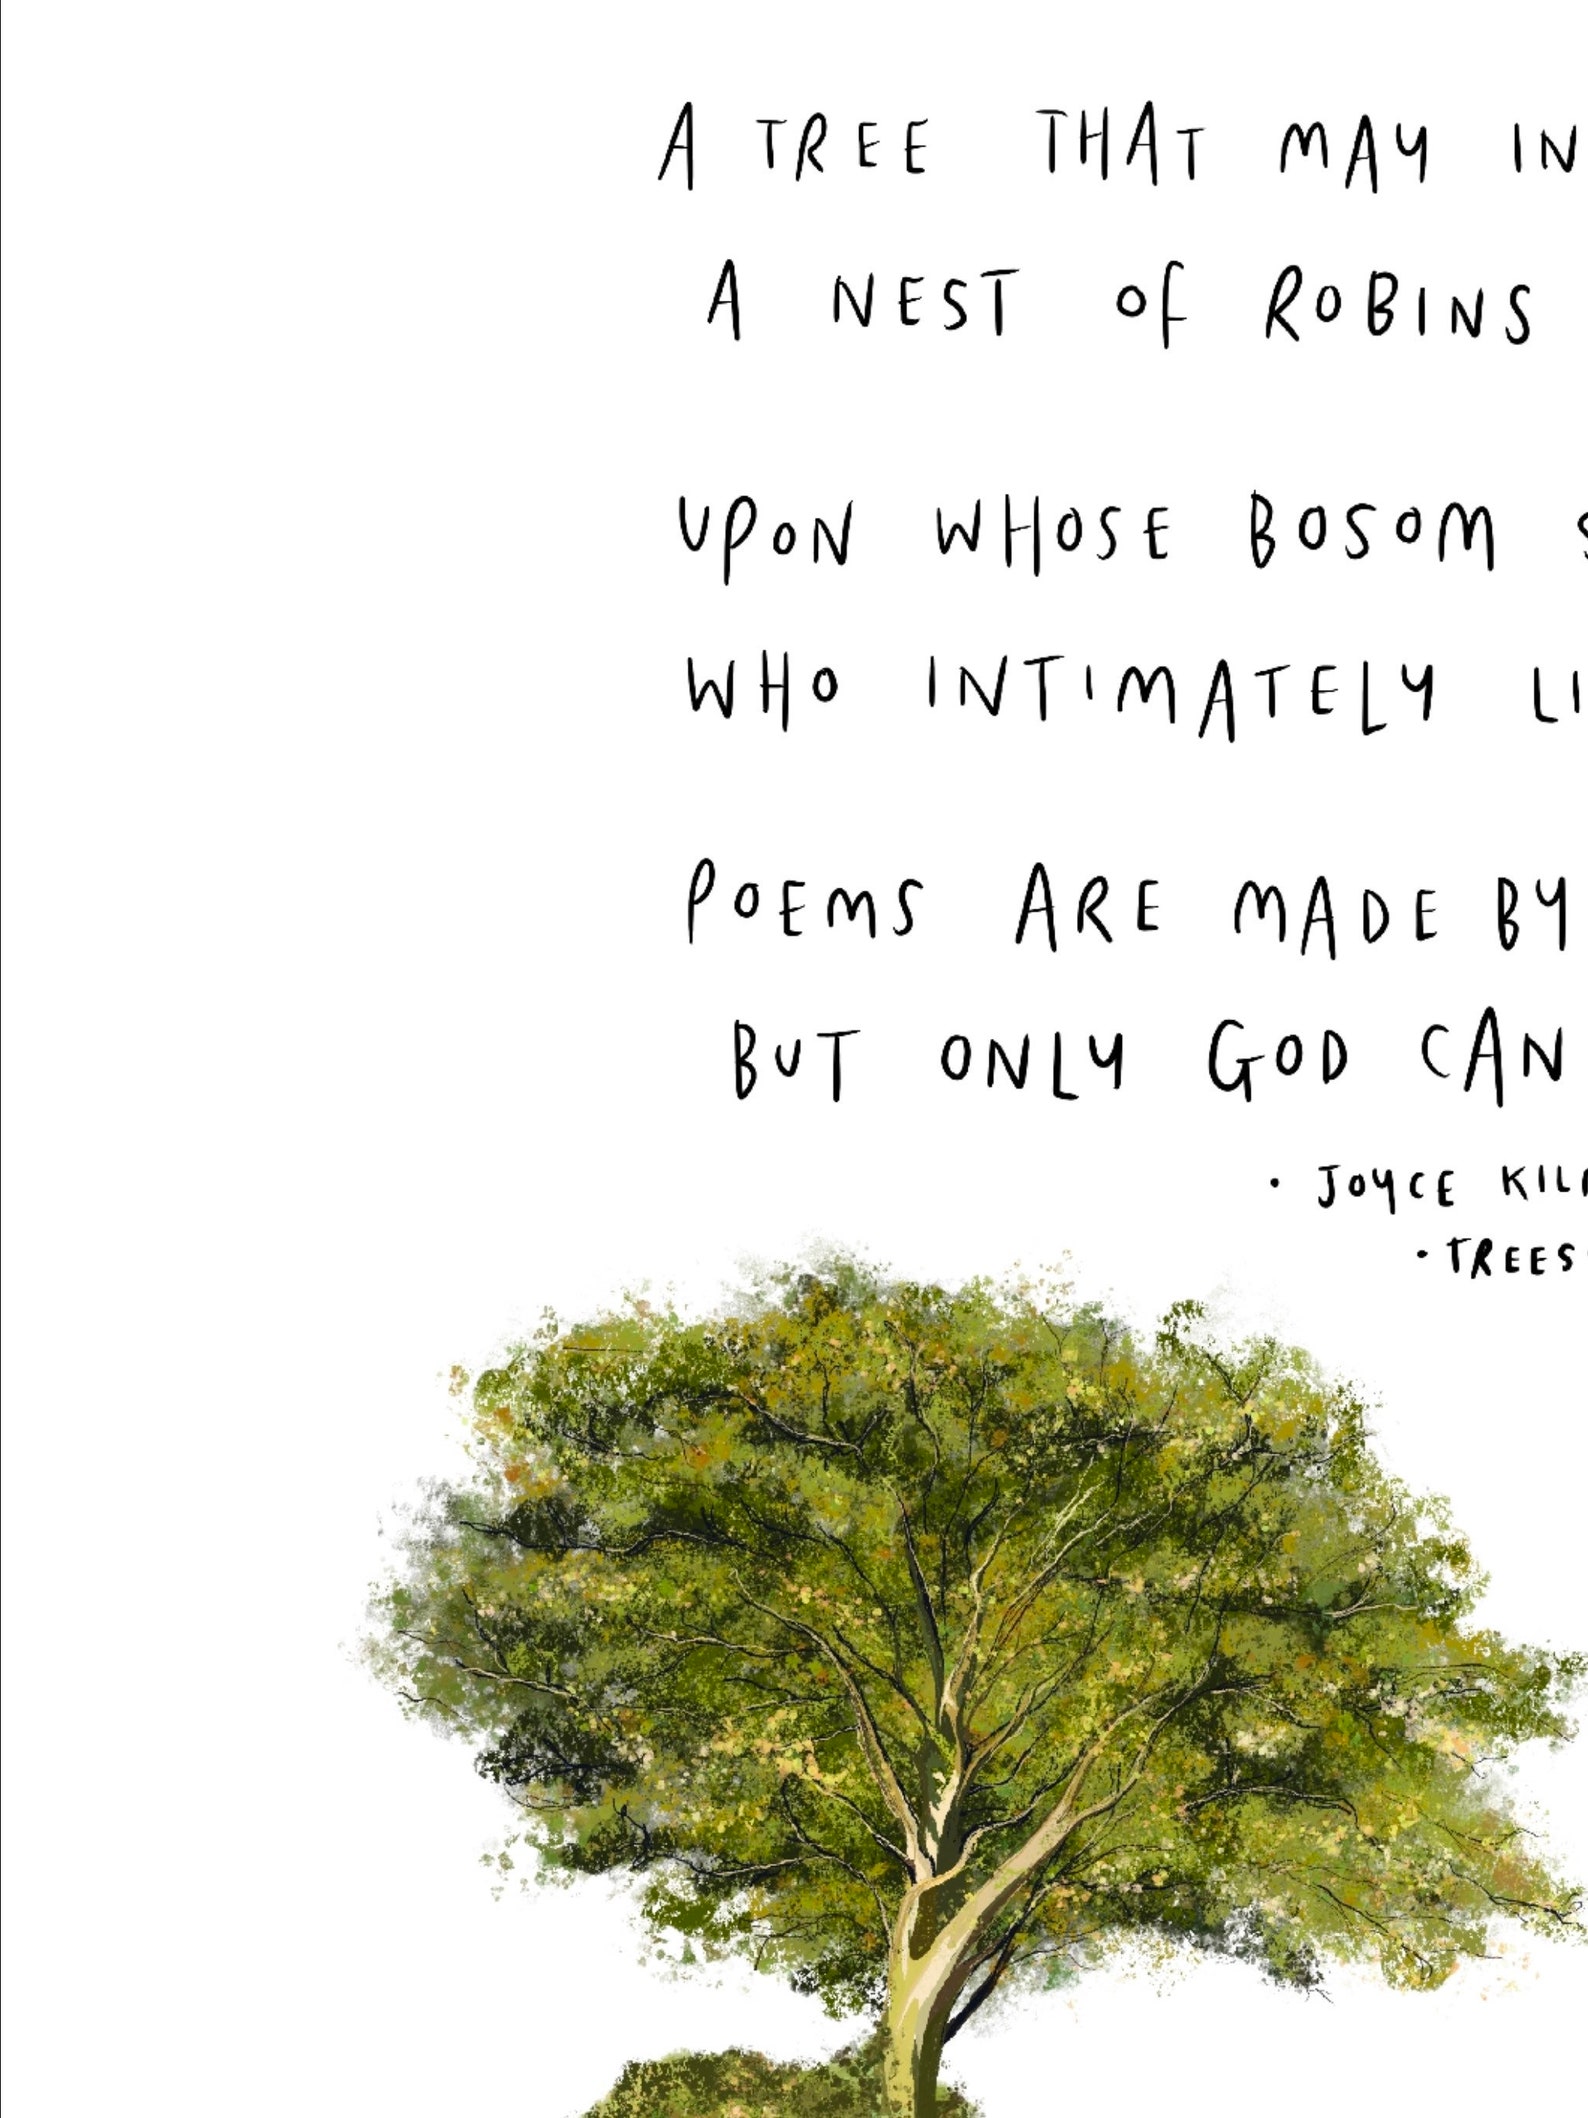 A TREE THAT MAY IN
A NEST OF ROBINS
UPON WHOSE BOSOM
WHO INTIMATELY LI
POEMS ARE MADE BY
BUT ONLY GOD CAN
• JOYCE KIL
• TREES